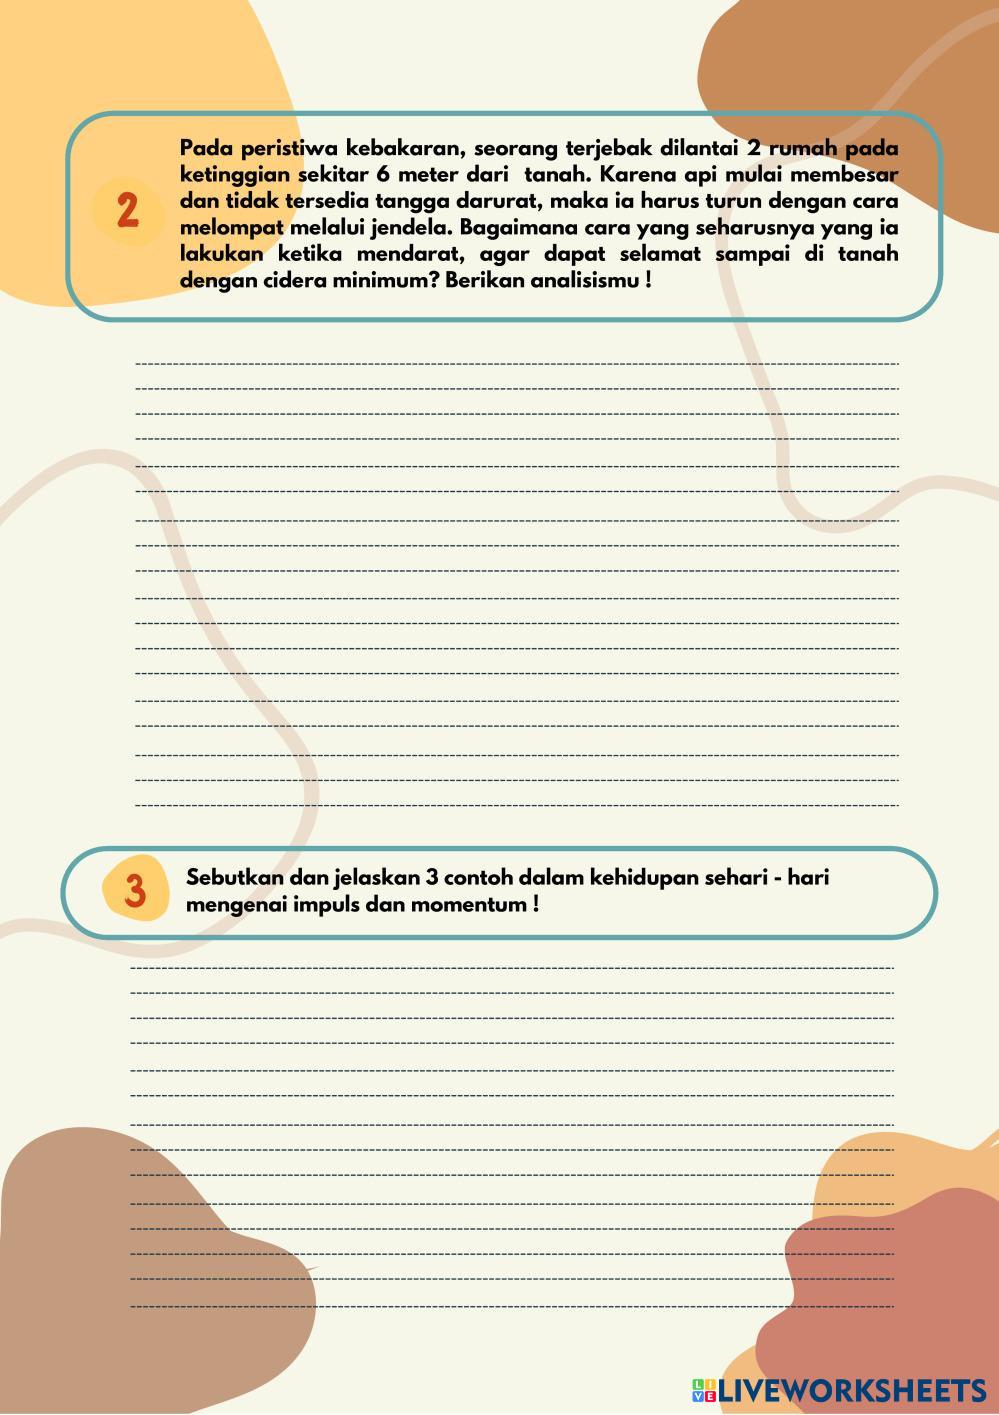 2
Pada peristiwa kebakaran, seorang terjebak dilantai 2 rumah pada
ketinggian sekitar 6 meter dari tanah. Karena api mulai membesar
dan tidak tersedia tangga darurat, maka ia harus turun dengan cara
melompat melalui jendela. Bagaimana cara yang seharusnya yang ia
lakukan ketika mendarat, agar dapat selamat sampai di tanah
dengan cidera minimum? Berikan analisismu !
3
Sebutkan dan jelaskan 3 contoh dalam kehidupan sehari - hari
mengenai impuls dan momentum !
LIVE LIVEWORKSHEETS